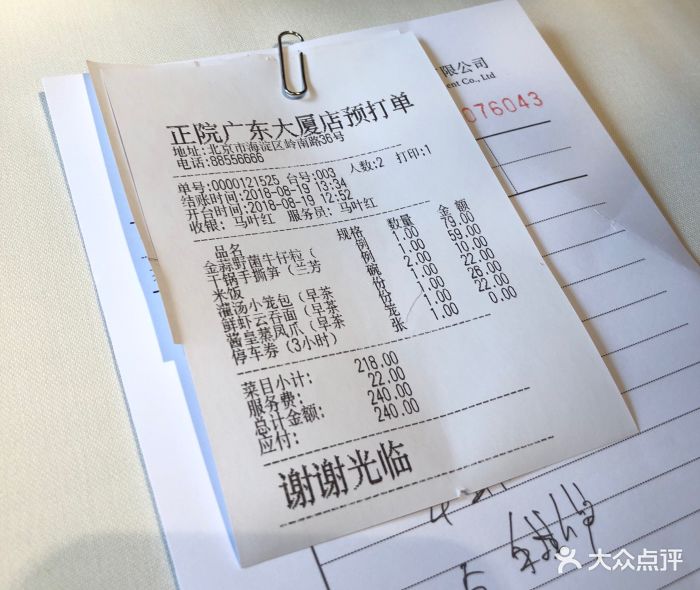 限公司
ent Co., Ltd
076043
正院广东大厦店预打单
地址:北京市海淀区岭南路36号
电话:88556666
单号:0000121525 台号:003 人数:2 打印:1
结账时间:2018-08-19 13:34
开台时间:2018-08-19 12:52
收银: 马叶红 服务员: 马叶红
品名 规格 数量 金额
金蒜野菌牛仔粒( 例 1.00 79.00
干锅手撕笋(兰芳 例 1.00 59.00
米饭 碗 2.00 10.00
灌汤小笼包(早茶 份 1.00 22.00
鲜虾云吞面(早茶 份 1.00 26.00
酱皇蒸凤爪(早茶 笼 1.00 22.00
停车券(3小时) 张 1.00 0.00
菜目小计: 218.00
服务费: 22.00
总计金额: 240.00
应付: 240.00
谢谢光临
大众点评